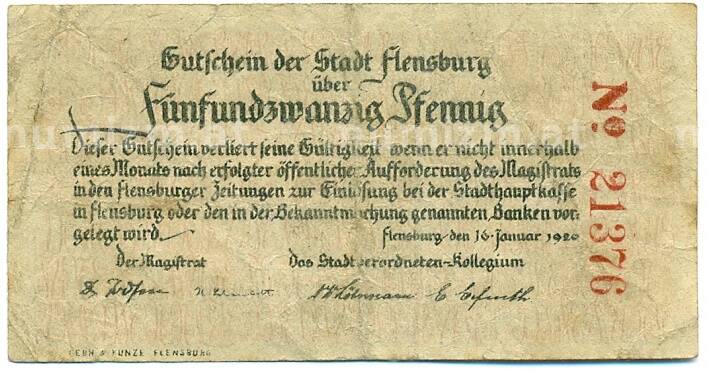 Gutschein der Stadt Flensburg
über
Fünfundzwanzig Pfennig
Dieser Gutschein verliert seine Gültigkeit wenn er nicht innerhalb
eines Monats nach erfolgter öffentlicher Aufforderung des Magistrats
in den Flensburger Zeitungen zur Einlösung bei der Stadthauptkasse
in Flensburg oder den in der Bekanntmachung genannten Banken vor-
gelegt wird.
Flensburg, den 16. Januar 1920
Der Magistrat Das Stadtverordneten-Kollegium
No 21376
& KUNZE FLENSBURG